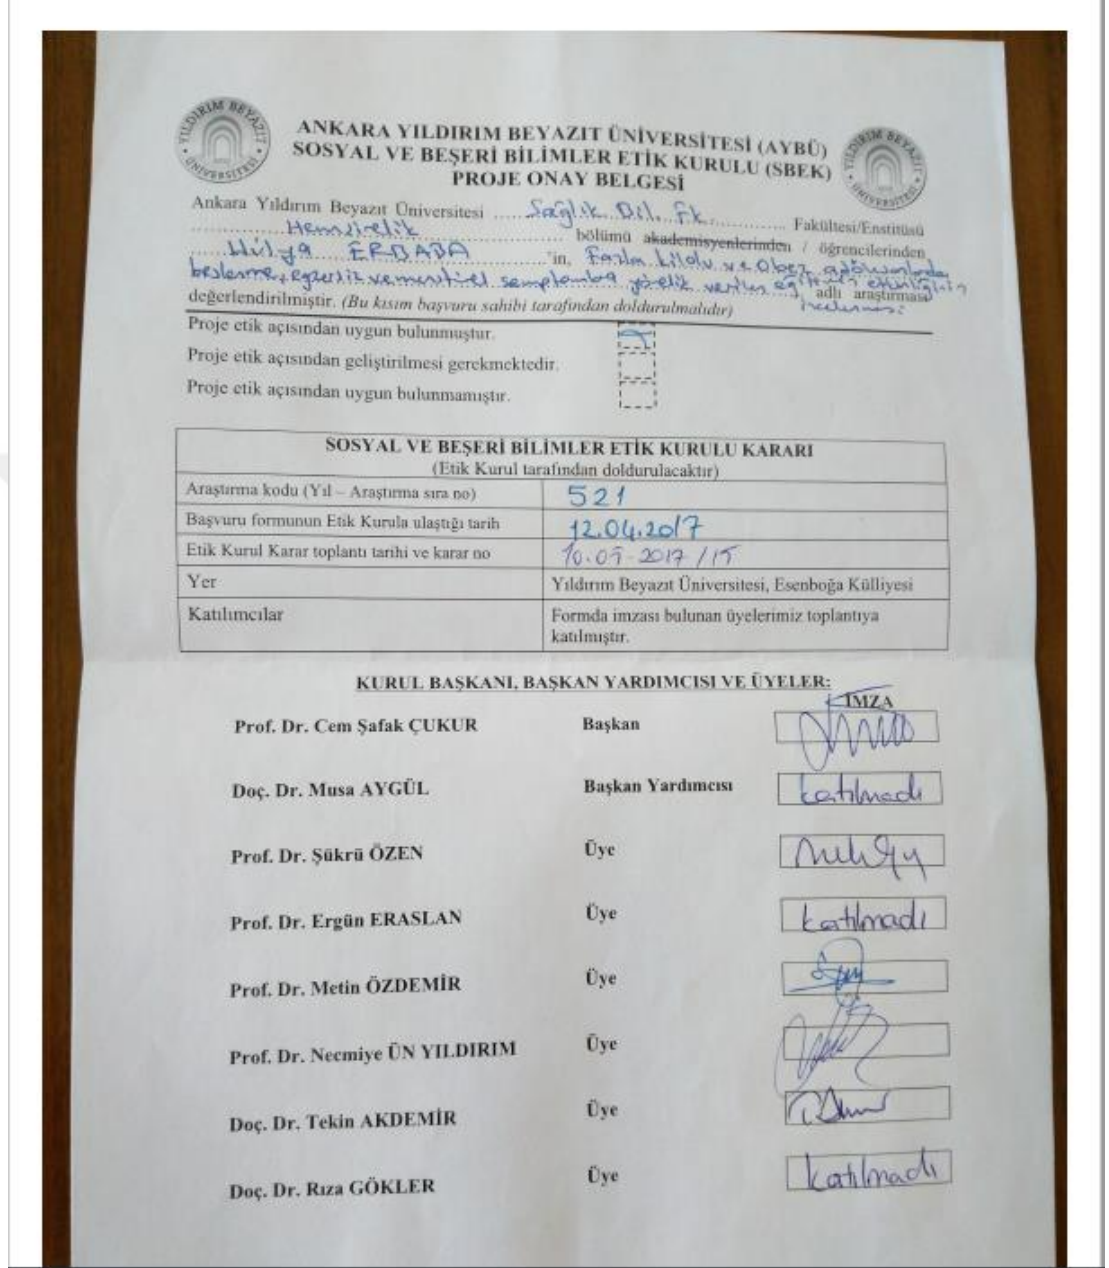 YILDIRIM BEYAZIT
ÜNİVERSİTESİ
ANKARA YILDIRIM BEYAZIT ÜNİVERSİTESİ (AYBÜ)
SOSYAL VE BEŞERİ BİLİMLER ETİK KURULU (SBEK)
PROJE ONAY BELGESİ
YILDIRIM BEYAZIT
ÜNİVERSİTESİ
Ankara Yıldırım Beyazıt Üniversitesi ..... Sağlık Bil. Fk. ............ Fakültesi/Enstitüsü
................ Hemşirelik ................ bölümü akademisyenlerinden / öğrencilerinden
...... Hülya ERBABA ............ 'in, Fazla kilolu ve Obez adölesanlarda
beslenme, egzersiz ve menstrüel semptomlara yönelik verilen eğitimin etkinliğinin
incelenmesi adlı araştırması
değerlendirilmiştir. (Bu kısım başvuru sahibi tarafından doldurulmalıdır)
Proje etik açısından uygun bulunmuştur.
Proje etik açısından geliştirilmesi gerekmektedir.
Proje etik açısından uygun bulunmamıştır.
SOSYAL VE BEŞERİ BİLİMLER ETİK KURULU KARARI
(Etik Kurul tarafından doldurulacaktır)
Araştırma kodu (Yıl – Araştırma sıra no) 521
Başvuru formunun Etik Kurula ulaştığı tarih 12.04.2017
Etik Kurul Karar toplantı tarihi ve karar no 10.05.2017 / 15
Yer Yıldırım Beyazıt Üniversitesi, Esenboğa Külliyesi
Katılımcılar Formda imzası bulunan üyelerimiz toplantıya
katılmıştır.
KURUL BAŞKANI, BAŞKAN YARDIMCISI VE ÜYELER:
İMZA
Prof. Dr. Cem Şafak ÇUKUR Başkan
Doç. Dr. Musa AYGÜL Başkan Yardımcısı katılmadı
Prof. Dr. Şükrü ÖZEN Üye
Prof. Dr. Ergün ERASLAN Üye katılmadı
Prof. Dr. Metin ÖZDEMİR Üye
Prof. Dr. Necmiye ÜN YILDIRIM Üye
Doç. Dr. Tekin AKDEMİR Üye
Doç. Dr. Rıza GÖKLER Üye katılmadı